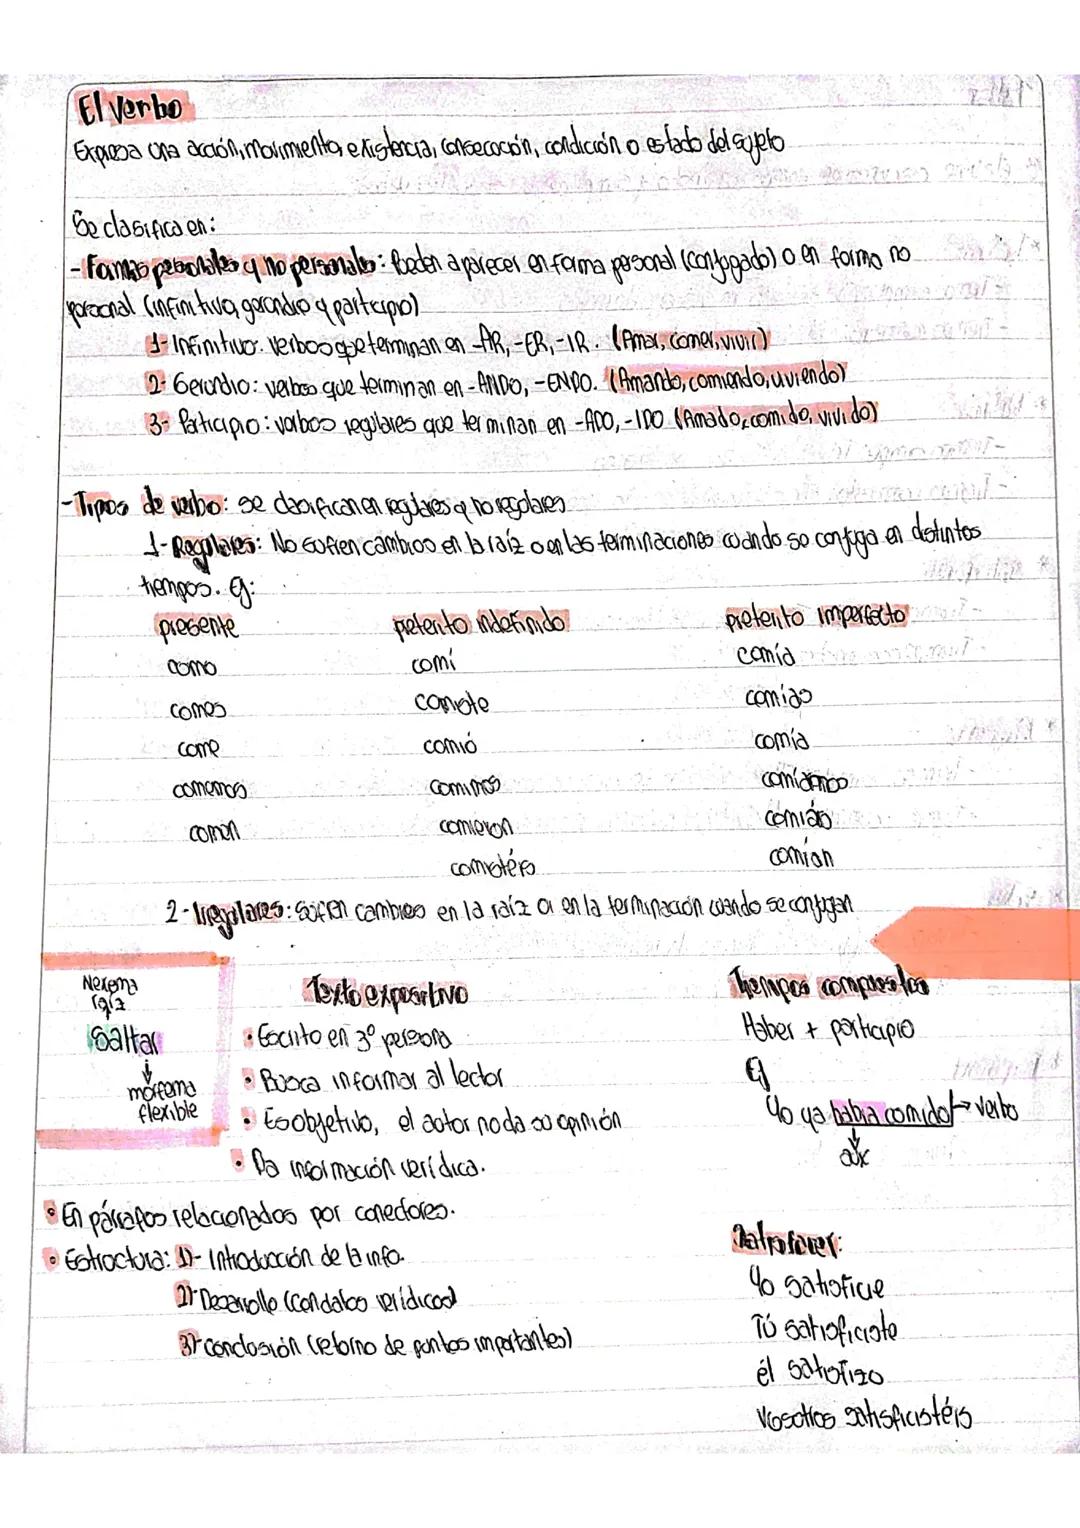 El verbo
Expresa una acción, movimiento, existencia, consecución, condición o estado del sujeto
Se clasifica en:
- Formas personales y no personales: Pueden aparecer en forma personal (conjugado) o en forma no
personal (infinitivo, gerundio y participio)
1- Infinitivo. verbos que terminan en -AR, -ER, -IR. (Amar, comer, vivir)
2- Gerundio: verbos que terminan en -ANDO, -ENDO. (Amando, comiendo, viviendo)
3- Participio: verbos regulares que terminan en -ADO, -IDO (Amado, comido, vivido)
- Tipos de verbo: se clasifican en regulares y no regulares
1- Regulares: No sufren cambios en la raíz o en las terminaciones cuando se conjuga en distintos
tiempos. Ej:
presente pretérito indefinido pretérito imperfecto
como comí comía
comes comiste comías
come comió comía
comemos comimos comíamos
comen comieron comíais
comistéis comían
2- Irregulares: Sufren cambios en la raíz o en la terminación cuando se conjugan
raíz
Saltar
morfema
flexible
Texto expositivo
• Escrito en 3º persona
• Busca informar al lector
• Es objetivo, el autor no da su opinión
• Da información verídica.
• En párrafos relacionados por conectores.
• Estructura: 1)- Introducción de la info.
2)- Desarrollo (con datos verídicos)
3)- conclusión (retorno de puntos importantes)
Tiempos compuestos
Haber + participio
Ej
Yo ya había comido → verbo
aux
Satisfacer:
Yo satisfice
Tú satisficiste
él satisfizo
Vosotros satisficistéis